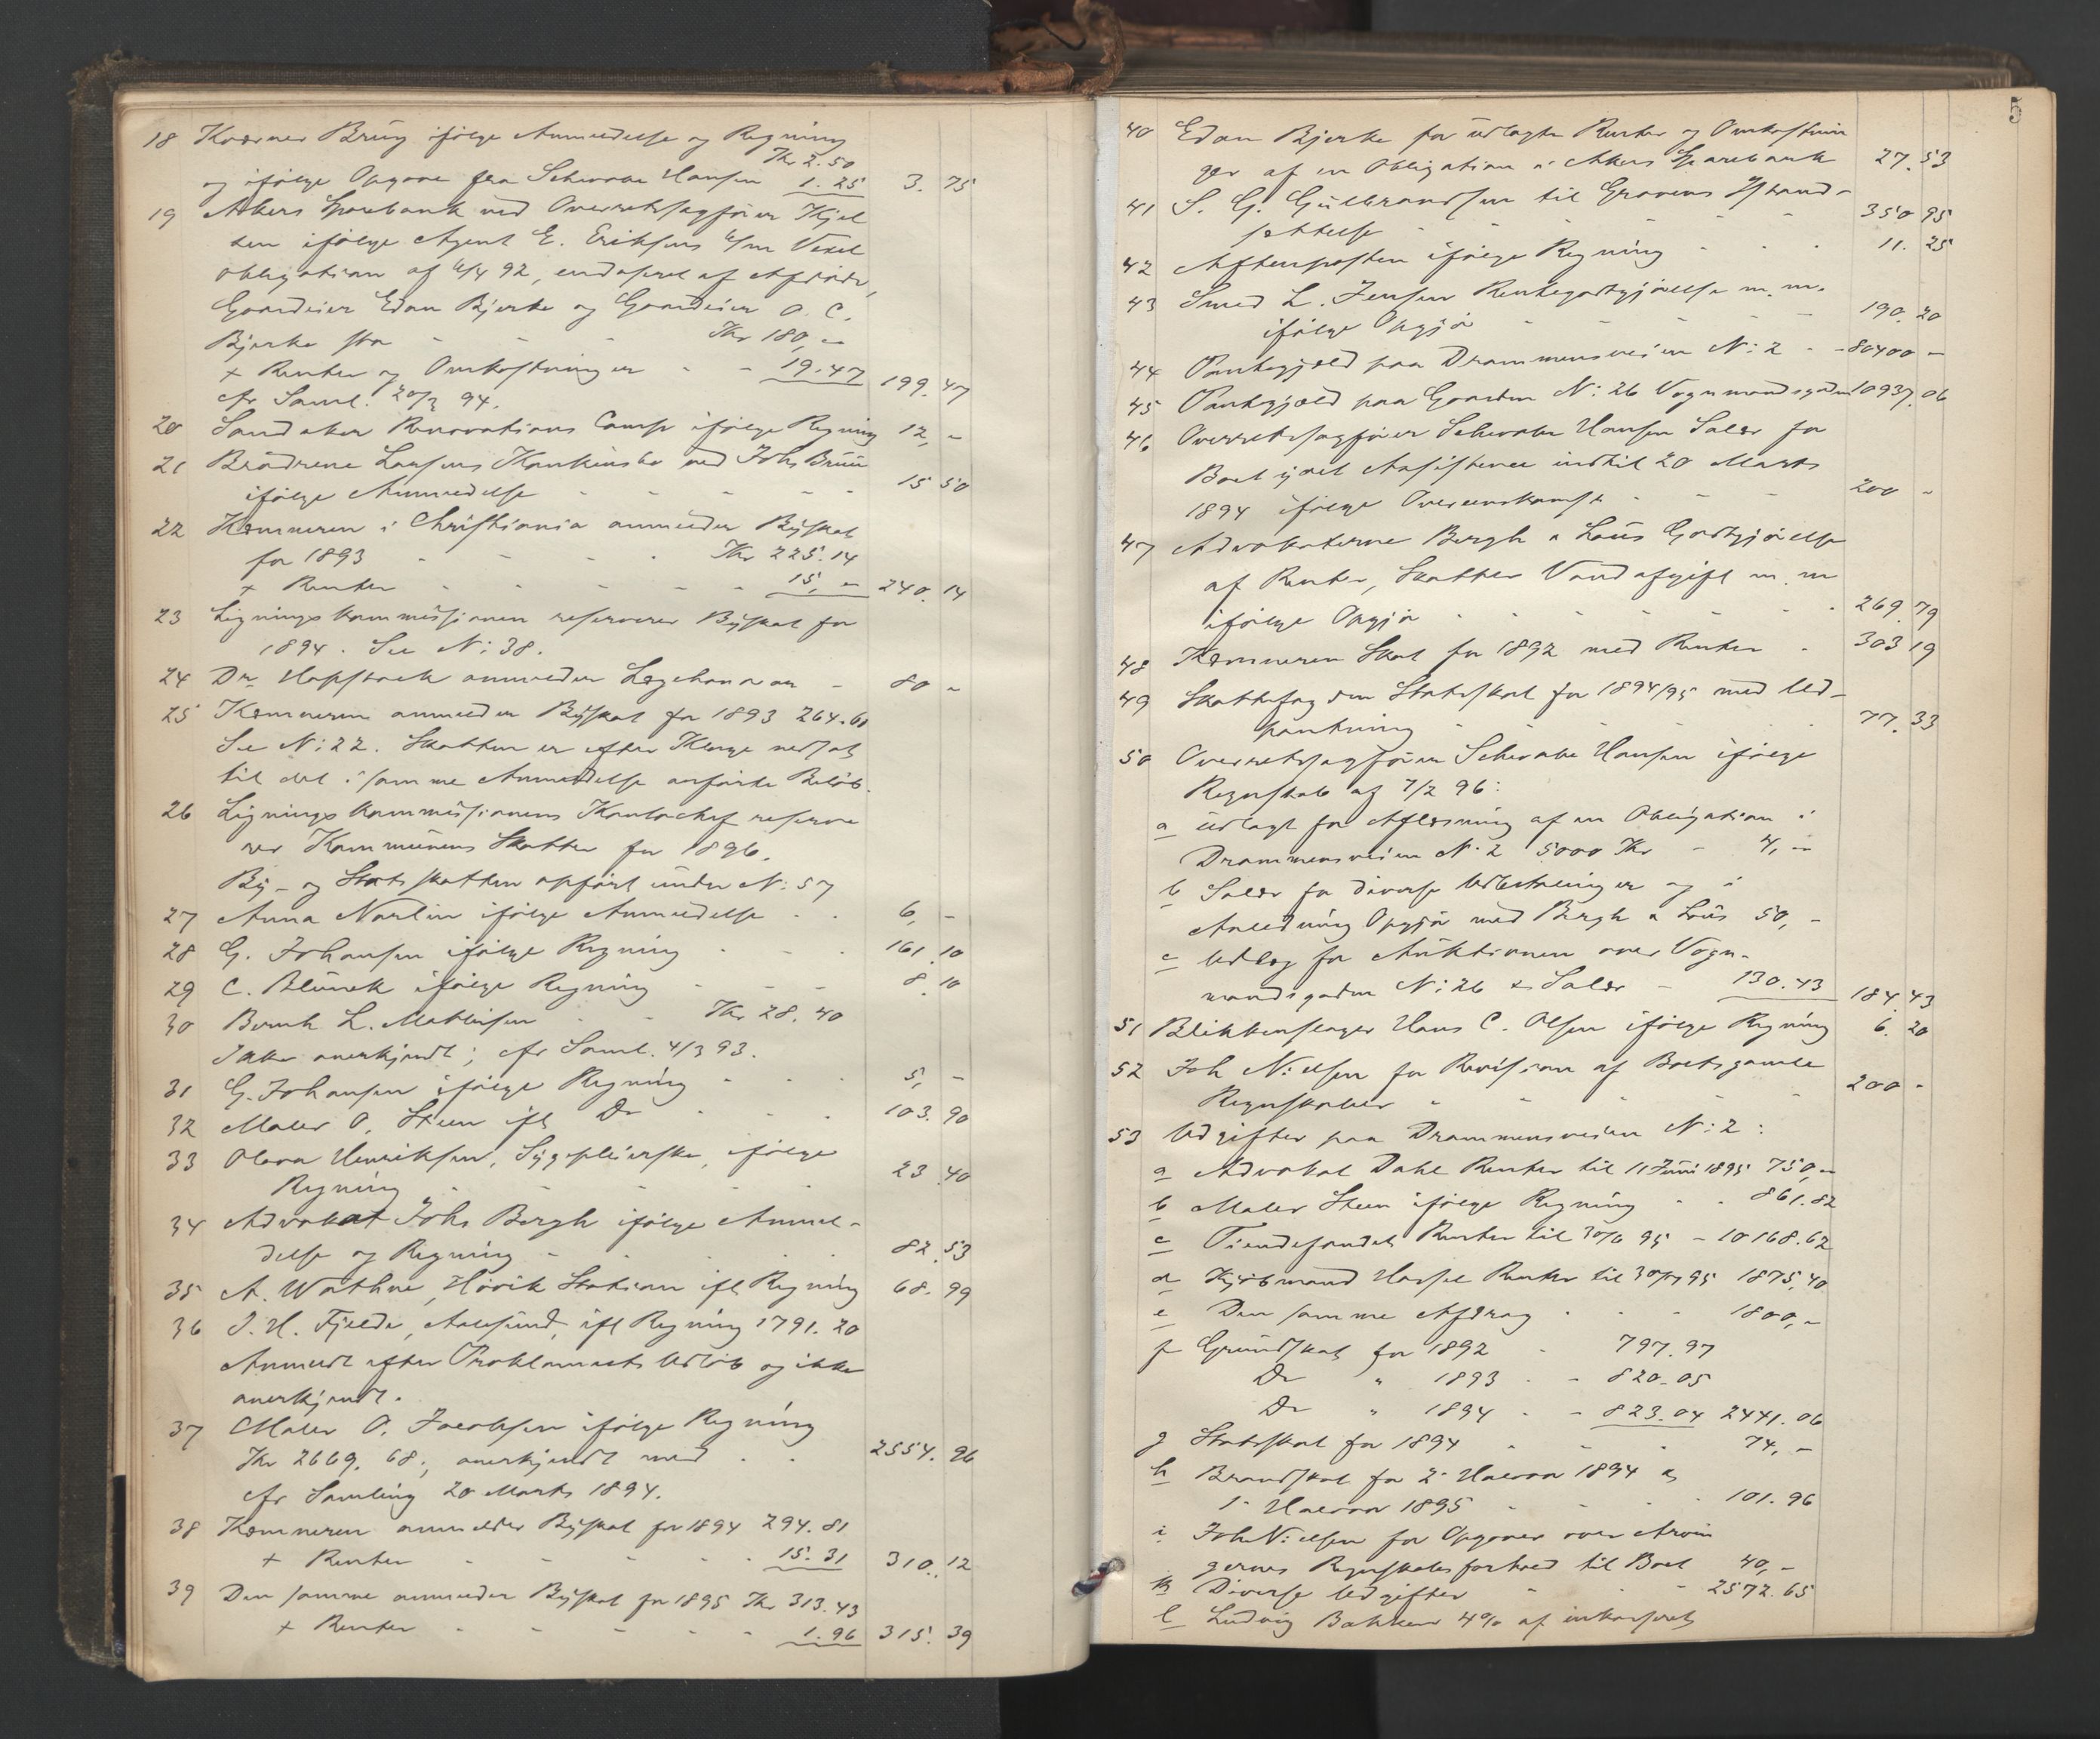 18 Kværner Brug ifølge Anmeldelse og Regning
Kr 2.50
og ifølge Opgave fra Schwabe Hansen 1.25 3.75
19 Akers Sparebank ved Overretssagfører Kjel
sen ifølge Agent E. Eriksens 6/m Vexel
obligation af 6/4 92, endosseret af Afdøde,
Gaardeier Edan Bjerke og Gaardeier O. C.
Bjerke stor - - - Kr 180,-
+ Renter og Omkostninger - - 19.47 199.47
cfr Saml. 20/3 94.
20 Sandaker Renovations Comp ifølge Regning 12,-
21 Brødrene Larsens Konkursbo ved Johs Bruun
ifølge Anmeldelse - - - - - 15 50
22 Kæmneren i Christiania anmelder Byskat
for 1893 - - - Kr 225.14
+ Renter - - - - - 15,- 240.14
23 Ligningskommissionen reserverer Byskat for
1894. Se N: 38.
24 Dr Hopstock anmelder Lægehonorar - 80 -
25 Kæmneren anmelder Byskat for 1893 264.61
Se N: 22. Skatten er efter Klage nedsat
til det i samme Anmeldelse anførte Beløb.
26 Ligningskommissionens Kontorchef reserve
rer Kommunens Skatter for 1896.
By- og Statsskatten opført under N: 57
27 Anna Norlin ifølge Anmeldelse - - 6,-
28 G. Johansen ifølge Regning - - - 161.10
29 C. Blunck ifølge Regning - - - 8.10
30 Bernh L. Mathisen - - Kr 28.40
Ikke anerkjendt; cfr Saml. 4/3 93.
31 G. Johansen ifølge Regning - - - 5,-
32 Maler O. Steen ifl Do - - - 103.90
33 Olava Henriksen, Sygepleierske, ifølge
Regning - - - - - 23.40
34 Advokat Johs Bergh ifølge Anmel-
delse og Regning - - - - 82.53
35 A. Wathne, Høvik Station ifl Regning 68.99
36 J. H. Fjelde, Aalesund, ifl Regning 1791.20
Anmeldt efter Proklamaets Udløb og ikke
anerkjendt.
37 Maler O. Jacobsen ifølge Regning
Kr 2669.68; anerkjendt med - - 2554.96
cfr Samling 20 Marts 1894.
38 Kæmneren anmelder Byskat for 1894 294.81
+ Renter - - - - - 15.31 310.12
39 Den samme anmelder Byskat for 1895 Kr 313.43
+ Renter - - - - - 1.96 315.39
5
40 Edan Bjerke for udlagte Renter og Omkostnin
ger af en Obligation i Akers Sparebank 27.53
41 S. G. Gulbrandsen til Gravens Istand-
sættelse - - - - - 350 95
42 Aftenposten ifølge Regning - - - 11.25
43 Smed L. Jensen Rentegodtgjørelse m. m.
ifølge Opgjør - - - - - 190.20
44 Pantegjæld paa Drammensveien N: 2 - - 80400 -
45 Pantegjæld paa Gaarden N: 26 Vognmandsgaden 10937.06
46 Overretssagfører Schwabe Hansen Salær for
Boet ydet Assistence indtil 20 Marts
1894 ifølge Overenskomst - - - 200 -
47 Advokaterne Bergh & Lous Godtgjørelse
af Renter, Skatter Vandafgift m. m
ifølge Opgjør - - - - - 269.79
48 Kæmneren Skat for 1892 med Renter - 303 19
49 Skattefogden Statsskat for 1894/95 med Ud-
pantning - - - - - 77.33
50 Overretssagfører Schwabe Hansen ifølge
Regnskab af 7/2 96:
a Udlagt for Aflæsning af en Obligation i
Drammensveien N: 2 5000 Kr - 4,-
b Salær for diverse Udbetalinger og i
Anledning Opgjør med Bergh & Lous 50,-
c Udlæg for Auktionen over Vogn-
mandsgaden N: 26 & Salær - 130.43 184.43
51 Blikkenslager Hans C. Olsen ifølge Regning 6.20
52 Joh Nielsen for Revision af Boets gamle
Regnskaber - - - - - 200 -
53 Udgifter paa Drammensveien N: 2:
a Advokat Dahl Renter til 11 Juni 1895 750,-
b Maler Steen ifølge Regning - - 861.82
c Tiendefondets Renter til 30/6 95 - 10168.62
d Kjøbmand Hassel Renter til 30/7 95 1875,40
e Den samme Afdrag - - - 1800,-
f Grundskat for 1892 - 797.97
Do " 1893 - - 820.05
Do " 1894 - - 823.04 2441.06
g Statsskat for 1894 - - - 74,-
h Brandskat for 2. Halvaar 1894 &
1. Halvaar 1895 - - - - 101.96
i Joh Nielsen for Opgaver over Arvin
gernes Regnskabsforhold til Boet 40,-
k Diverse Udgifter - - - 2572.65
l Ludvig Bakken 4% af inkasseret